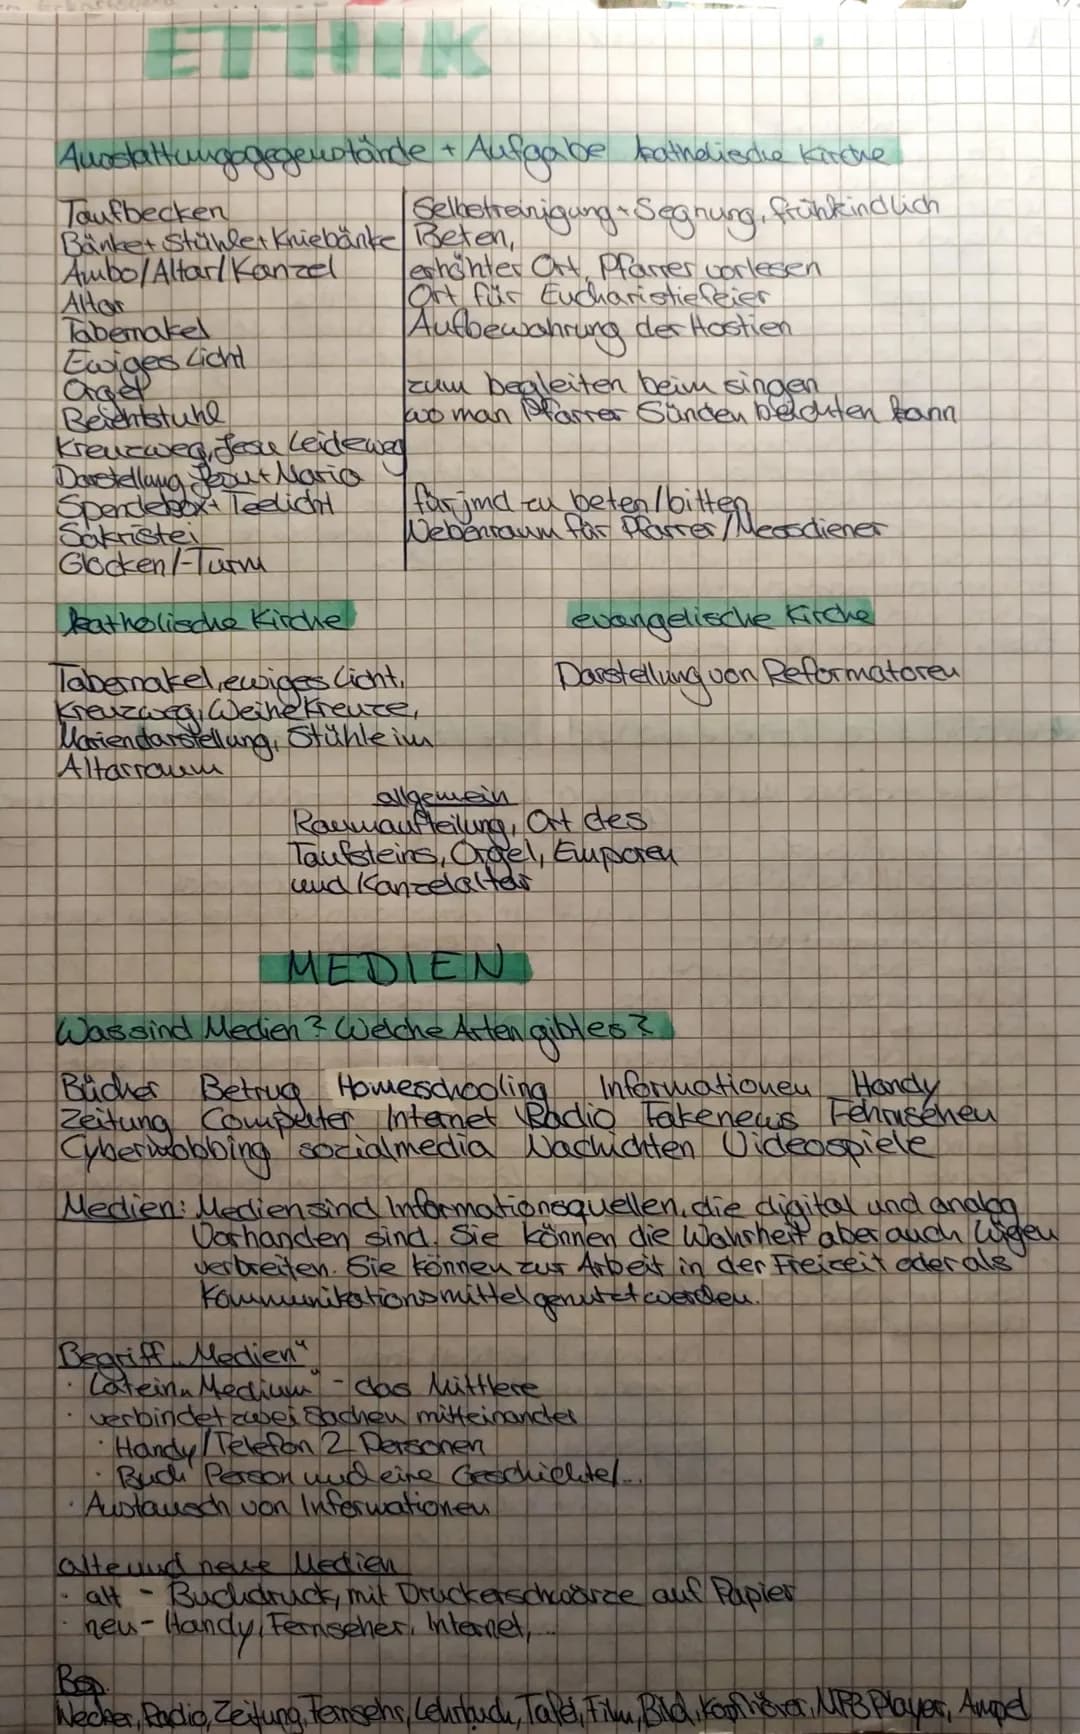 ETHIK
Ausstattungsgegenstände + Aufgabe katholische Kirche
Taufbecken Selbstreinigung + Segnung, frühkindlich
Bänke + Stühle + Kniebänke Beten,
Ambo/Altar/Kanzel erhöhter Ort, Pfarrer vorlesen
Altar Ort für Eucharistiefeier
Tabernakel Aufbewahrung der Hostien
Ewiges Licht
Orgel zum begleiten beim singen
Beichtstuhl wo man Pfarrer Sünden beichten kann
Kreuzweg, Jesu Leideweg
Darstellung Jesu + Maria
Spendebox + Teelicht für jmd zu beten/bitten
Sakristei Nebenraum für Pfarrer/Messdiener
Glocken/-Turm
katholische Kirche evangelische Kirche
Tabernakel, ewiges Licht, Darstellung von Reformatoren
Kreuzweg, Weihekreuze,
Mariendarstellung, Stühle im
Altarraum
allgemein
Raumaufteilung, Ort des
Taufsteins, Orgel, Emporen
und Kanzelaltar
MEDIEN
Was sind Medien? Welche Arten gibt es?
Bücher Betrug Homeschooling Informationen Handy
Zeitung Computer Internet Radio Fakenews Fehrnsehen
Cybermobbing sozialmedia Nachichten Videospiele
Medien: Medien sind Informationsquellen, die digital und analog
Vorhanden sind. Sie können die Wahrheit aber auch Lügen
verbreiten. Sie können zur Arbeit in der Freizeit oder als
Kommunikationsmittel genutzt werden.
Begriff „Medien"
· Latein „Medium" - das Mittlere
· verbindet zwei Sachen mitteinander
· Handy/Telefon 2 Personen
· Buch Person und eine Geschichte/...
· Austausch von Informationen
alte und neue Medien
· alt - Buchdruck, mit Druckerschwärze auf Papier
· neu - Handy, Fernseher, Internet, ...
Bsp.
Wecker, Radio, Zeitung, Fernsehr, Lehrbuch, Tafel, Film, Bild, Kopfhörer, MP3 Player, Ampel